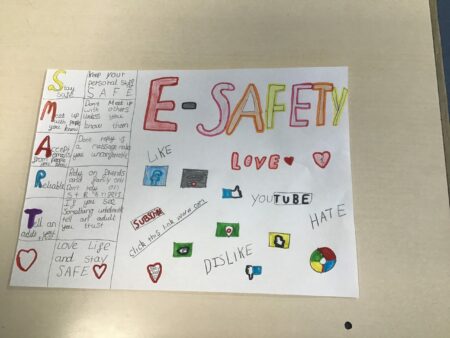 Stay safe
Keep your
personal stuff
SAFE
Meet up
with people
you know
Don't Meet up
with others
unless you
know them
Accept
from people
you
Don't reply if
a message makes
you uncomfortable
Reliable
Rely on friends
and family only
Don't rely on
Tell an
adult
If you see
something
tell an adult
you trust
LOVE LIFE
and stay
SAFE
E-SAFETY
LIKE
LOVE
YOUTUBE
HATE
click this link www.com
DISLIKE